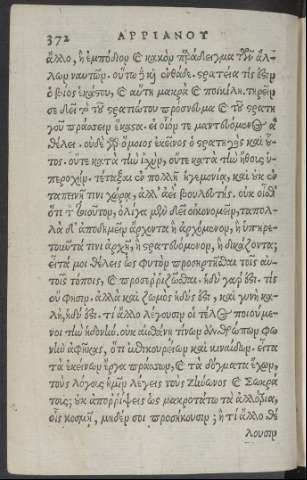 372 ΑΡΡΙΑΝΟΥ
ἄλλο, ἢ ἐμπόδιον καὶ κακὸν παράδειγμα τῶν ἄλ-
λων ναυτῶν. οὕτω δὲ καὶ ἐνθάδε. στρατεία τίς ἐστιν
ὁ βίος ἑκάστου, καὶ αὕτη μακρὰ καὶ ποικίλη. τηρεῖν
σε δεῖ τὸ τοῦ στρατιώτου πρόσνευμα καὶ τοῦ στρατη
γοῦ πράσσειν ἕκαστα. εἰ οἷόν τε μαντευόμενον ἃ
θέλει. οὐδὲ γὰρ ὅμοιος ἐκεῖνος ὁ στρατηγὸς καὶ οὗ-
τος. οὔτε κατὰ τὴν ἰσχὺν, οὔτε κατὰ τὴν ἤθους ὑ-
περοχήν. τέταξαι ἐν πόλει ἡγεμονίᾳ, καὶ οὐκ ἐν
ταπεινῇ τινι χώρᾳ, ἀλλ' ἀεὶ βουλευτής. οὐκ οἶδας
ὅτι τὸν τοιοῦτον, ὀλίγα μὲν δεῖ οἰκονομεῖν, τὰ πολ-
λὰ δ' ἀποδημεῖν ἄρχοντα ἢ ἀρχόμενον, ἢ ὑπηρε-
τοῦντά τινι ἀρχῇ, ἢ στρατευόμενον, ἢ δικάζοντα;
εἶτά μοι θέλεις ὡς φυτὸν προσηρτῆσθαι τοῖς αὐ-
τοῖς τόποις, καὶ προσερριζῶσθαι. ἡδὺ γάρ ἐστι. τίς
οὔ φησιν. ἀλλὰ καὶ ζωμὸς ἡδύς ἐστι, καὶ γυνὴ κα-
λὴ, ἡδύ ἐστι. τί ἄλλο λέγουσιν οἱ τέλος ποιούμε-
νοι τὴν ἡδονήν. οὐκ αἰσθάνῃ τίνων ἀνθρώπων φω
νὴν ἀφῆκας, ὅτι ἐπικουρείων καὶ κιναίδων. εἶτα
τὰ ἐκείνων ἔργα πράσσων, καὶ τὰ δόγματα ἔχων,
τοὺς λόγους ἡμῖν λέγεις τοὺς Ζήνωνος καὶ Σωκρά
τους; οὐκ ἀπορρίψεις ὡς μακροτάτω τὰ ἀλλότρια,
οἷς κοσμῇ, μηδέν σοι προσήκουσιν; ἢ τί ἄλλο θέ
λουσιν